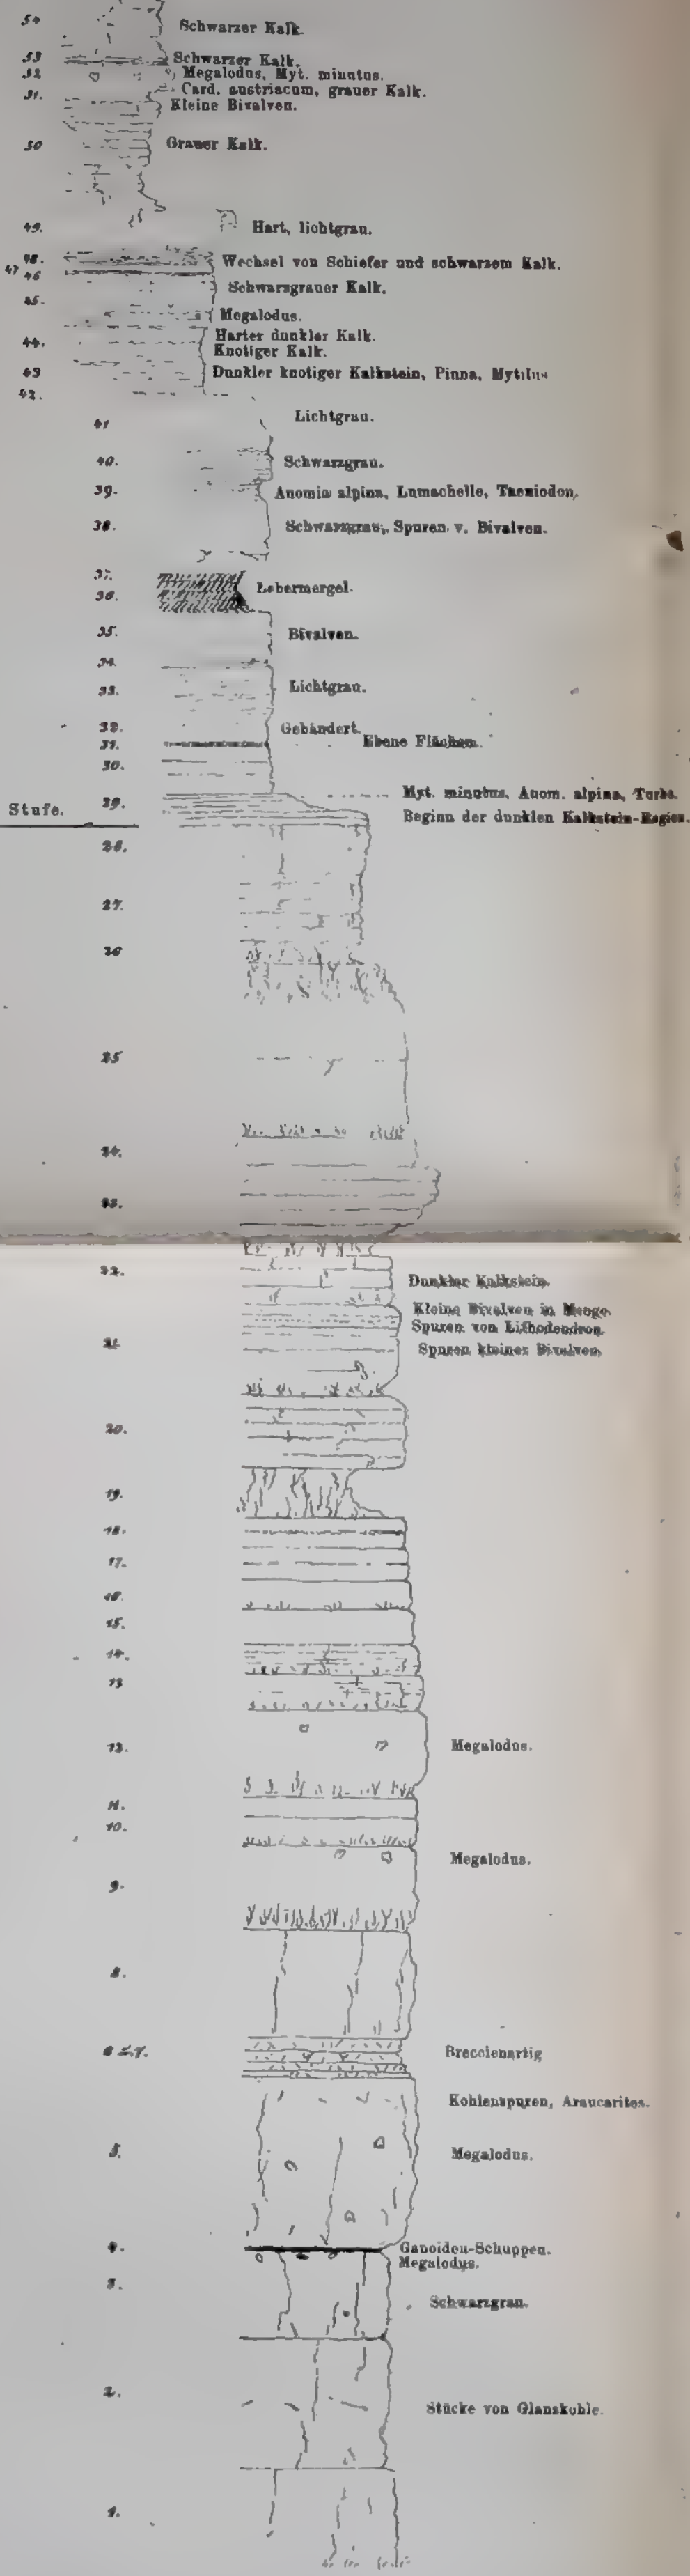 54 Schwarzer Kalk.
53 Schwarzer Kalk.
52 Megalodus, Myt. minutus.
51. Card. austriacum, grauer Kalk.
Kleine Bivalven.
50 Grauer Kalk.
49. Hart, lichtgrau.
48. Wechsel von Schiefer und schwarzem Kalk.
47 46 Schwarzgrauer Kalk.
45. Megalodus.
44. Harter dunkler Kalk.
Knotiger Kalk.
43 Dunkler knotiger Kalkstein, Pinna, Mytilus
42.
41 Lichtgrau.
40. Schwarzgrau.
39. Anomia alpina, Lumachelle, Taeniodon,
38. Schwarzgrau, Spuren v. Bivalven.
37.
36. Lebermergel.
35. Bivalven.
34.
33. Lichtgrau.
32. Gebändert.
31. Ebene Flächen.
30.
29. Myt. minutus, Anom. alpina, Turbo.
Stufe. Beginn der dunklen Kalkstein-Region.
28.
27.
26
25
24.
23.
22. Dunkler Kalkstein.
Kleine Bivalven in Menge.
Spuren von Lithodendron.
21. Spuren kleiner Bivalven.
20.
19.
18.
17.
16.
15.
14.
13
12. Megalodus.
11.
10.
Megalodus.
9.
8.
6 u. 7. Breccienartig
Kohlenspuren, Araucarites.
5. Megalodus.
4. Ganoiden-Schuppen.
Megalodus.
3. Schwarzgrau.
2. Stücke von Glanzkohle.
1.